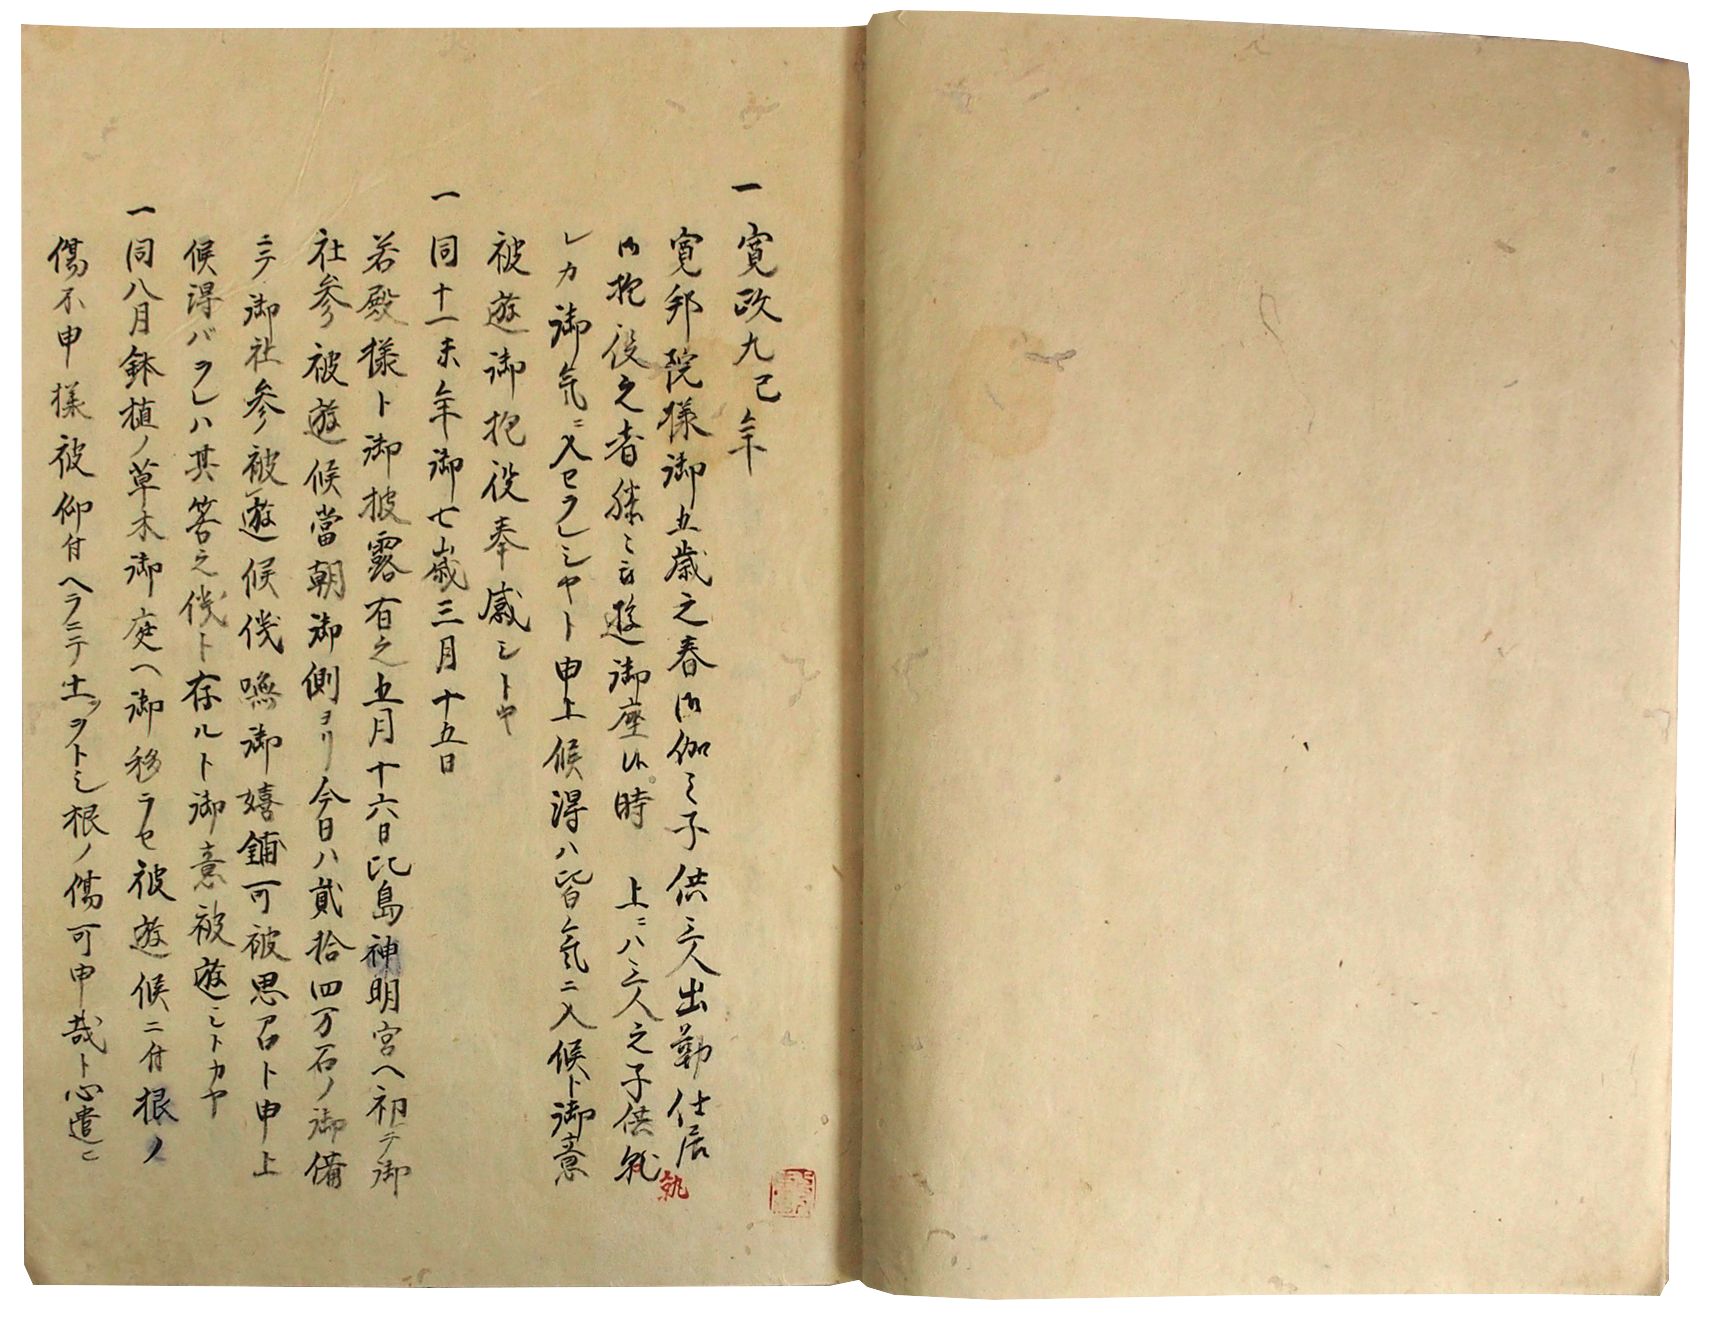 一 寛政九巳年
寛邦院様御五歳之春御伽ニ子供三人出勤仕居
御抱役之者膝ニ被遊御座候時 上ニハ三人之子供孰
孰
レカ御気ニ入セラレシヤト申上候得ハ皆気ニ入候ト御意
被遊御抱役奉感シトヤ
一 同十一未年御七歳三月十五日
若殿様ト御披露有之五月十六日比島神明宮ヘ初テ御
社参被遊候當朝御側ヨリ今日ハ貳拾四万石ノ御備
ニテ御社参ノ被遊候儀嘸御嬉鋪可被思召ト申上
候得バヲレハ其筈之儀ト存ルト御意被遊シトカヤ
一同八月鉢植ノ草木御庭ヘ御移ラセ被遊候ニ付根ノ
傷不申様被仰付ヘラニテ土ヲトシ根ノ傷可申哉ト心遣ニ